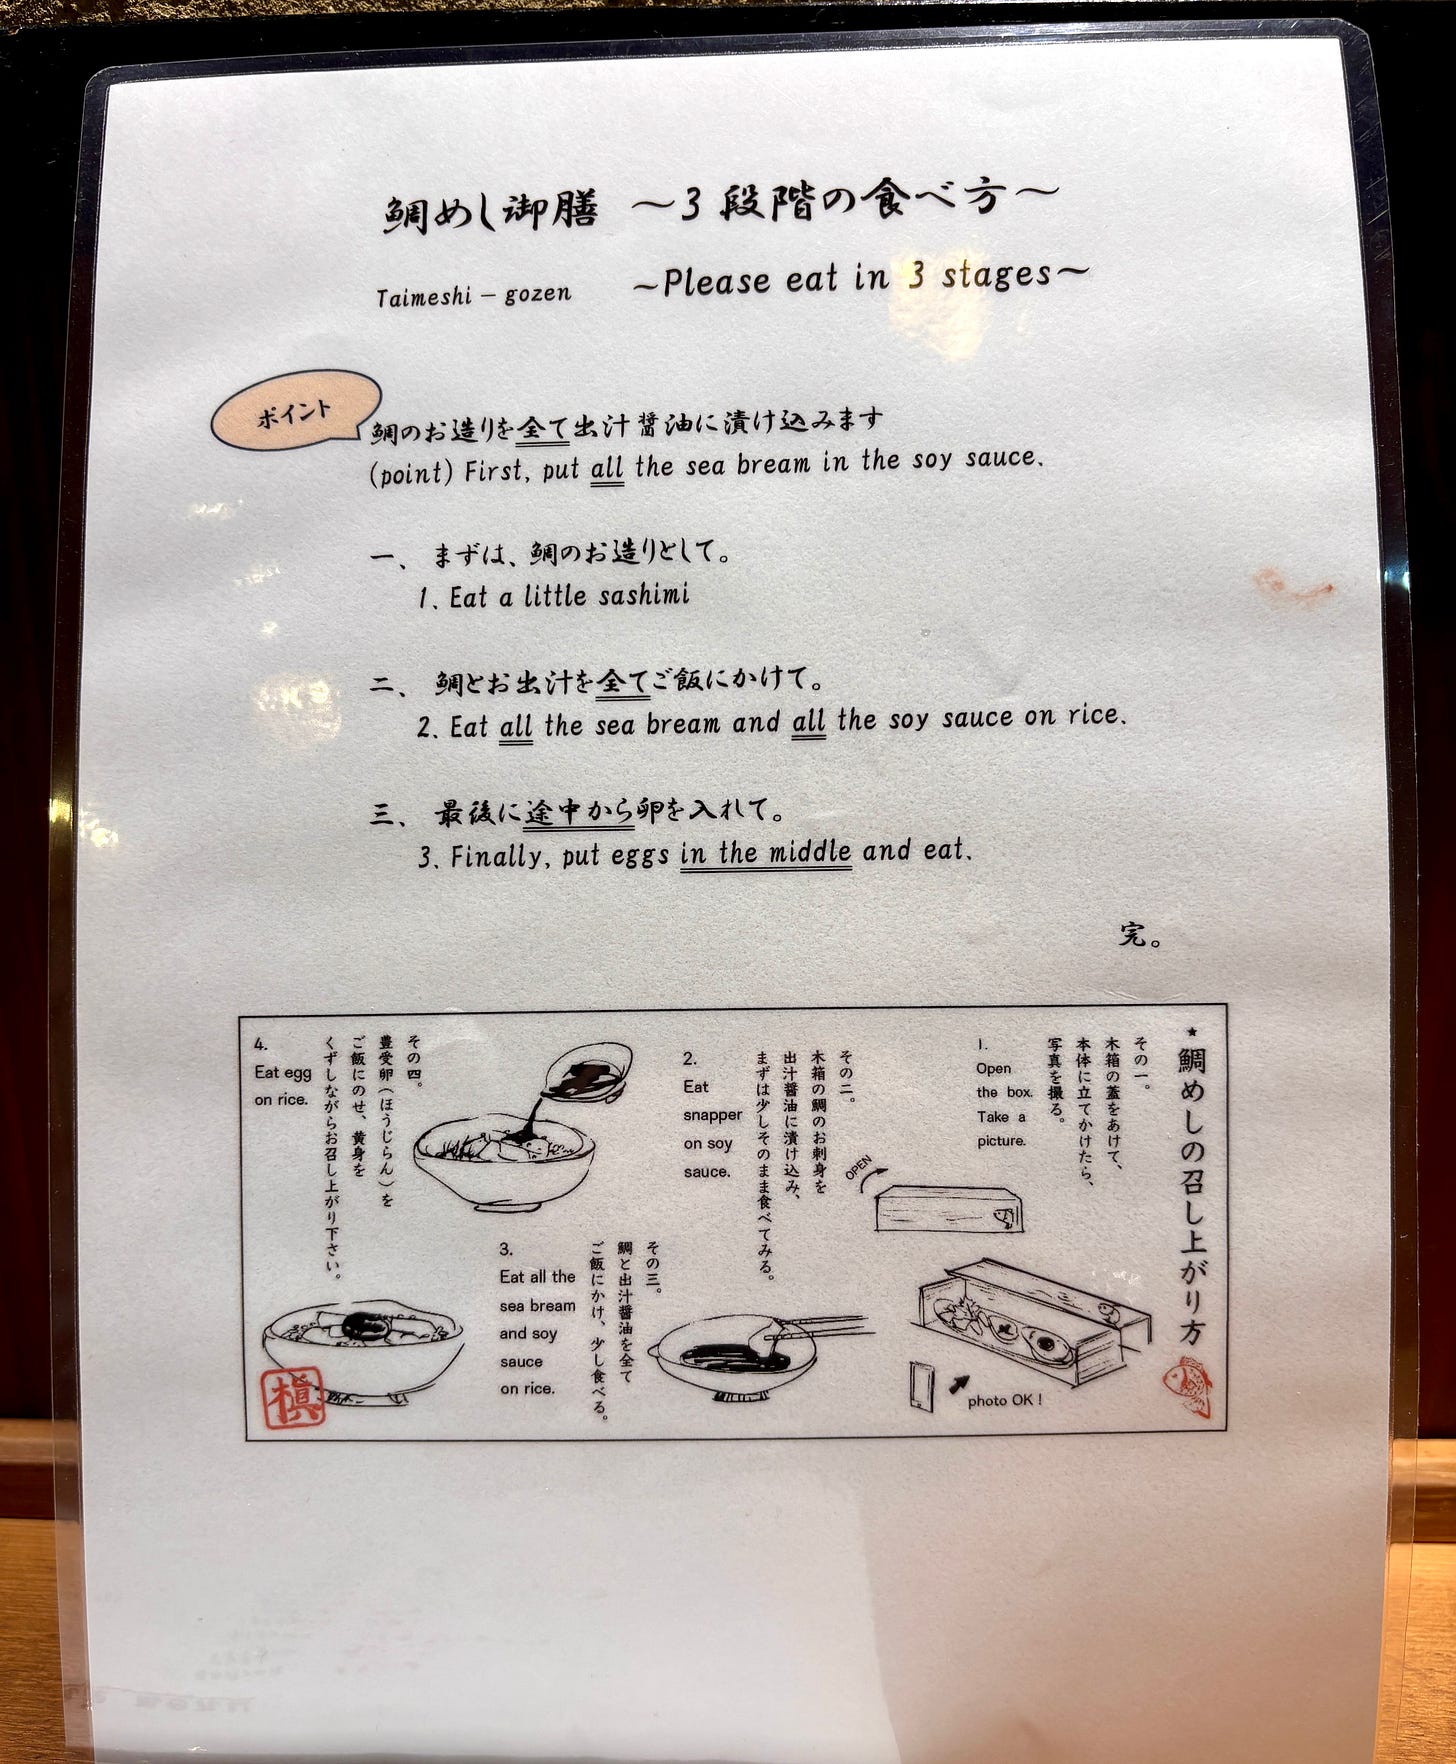 鯛めし御膳 ～3段階の食べ方～
Taimeshi – gozen ~Please eat in 3 stages~
ポイント
鯛のお造りを全て出汁醤油に漬け込みます
(point) First, put all the sea bream in the soy sauce.
一、 まずは、鯛のお造りとして。
1. Eat a little sashimi
二、 鯛とお出汁を全てご飯にかけて。
2. Eat all the sea bream and all the soy sauce on rice.
三、 最後に途中から卵を入れて。
3. Finally, put eggs in the middle and eat.
完。
★鯛めしの召し上がり方
その一。
木箱の蓋をあけて、
本体に立てかけたら、
写真を撮る。
1.
Open
the box.
Take a
picture.
OPEN
photo OK !
その二。
木箱の鯛のお刺身を
出汁醤油に漬け込み、
まずは少しそのまま食べてみる。
2.
Eat
snapper
on soy
sauce.
その三。
鯛と出汁醤油を全て
ご飯にかけ、少し食べる。
3.
Eat all the
sea bream
and soy
sauce
on rice.
その四。
豊受卵（ほうじらん）を
ご飯にのせ、黄身を
くずしながらお召し上がり下さい。
4.
Eat egg
on rice.
槇